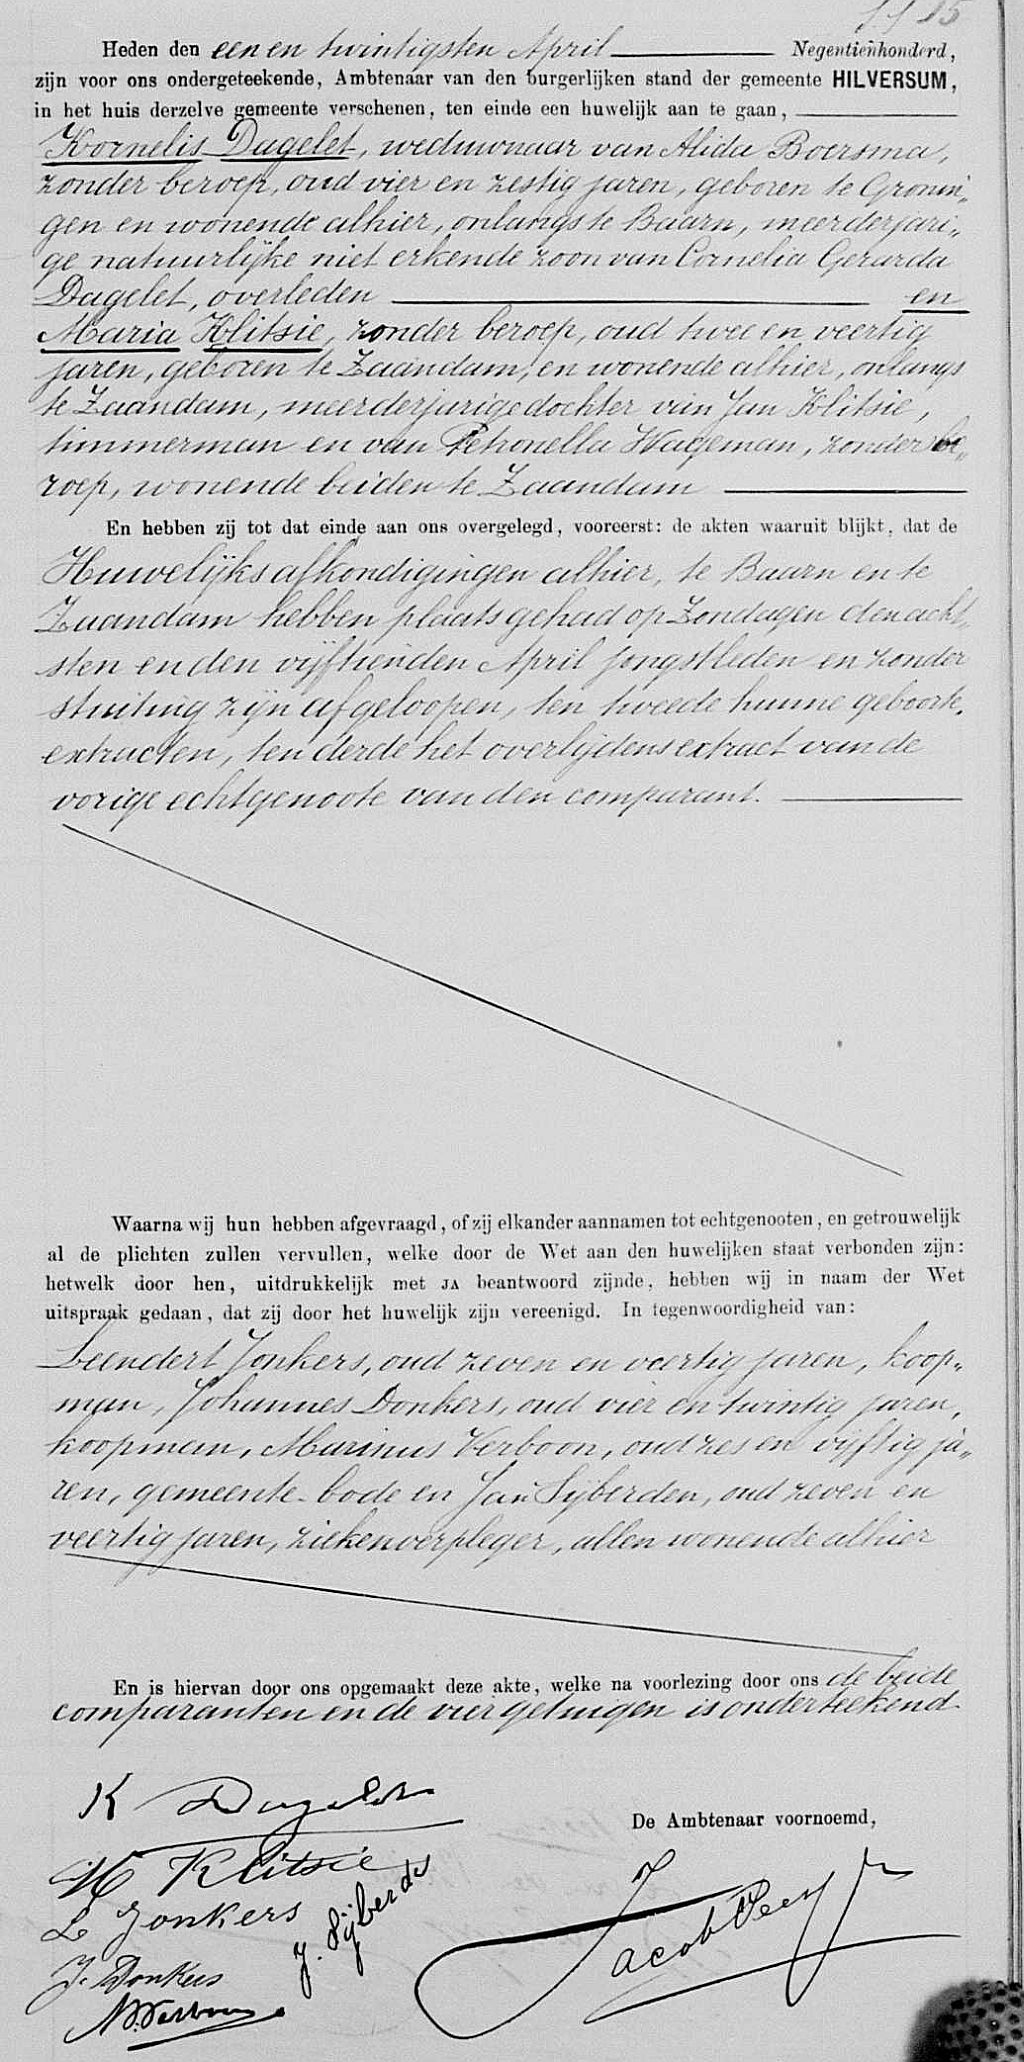 Heden den een en twintigsten April Negentienhonderd,
zijn voor ons ondergeteekende, Ambtenaar van den burgerlijken stand der gemeente HILVERSUM,
in het huis derzelve gemeente verschenen, ten einde een huwelijk aan te gaan,
Kornelis Dagelet, weduwnaar van Alida Boersma,
zonder beroep, oud vier en zestig jaren, geboren te Gronin„
gen en wonende alhier, onlangs te Baarn, meerderjari„
ge natuurlijke niet erkende zoon van Cornelia Gerarda
Dagelet, overleden en
Maria Klitsie, zonder beroep, oud twee en veertig
jaren, geboren te Zaandam, en wonende alhier, onlangs
te Zaandam, meerderjarige dochter van Jan Klitsie,
timmerman en van Petronella Wageman, zonder be„
roep, wonende beiden te Zaandam
En hebben zij tot dat einde aan ons overgelegd, vooreerst: de akten waaruit blijkt, dat de
Huwelijksafkondigingen alhier, te Baarn en te
Zaandam hebben plaats gehad op Zondagen den acht„
sten en den vijftienden April jongstleden en zonder
stuiting zijn afgeloopen, ten tweede hunne geboorte„
extracten, ten derde het overlijdensextract van de
vorige echtgenoote van den comparant.
Waarna wij hun hebben afgevraagd, of zij elkander aannamen tot echtgenooten, en getrouwelijk
al de plichten zullen vervullen, welke door de Wet aan den huwelijken staat verbonden zijn:
hetwelk door hen, uitdrukkelijk met JA beantwoord zijnde, hebben wij in naam der Wet
uitspraak gedaan, dat zij door het huwelijk zijn vereenigd. In tegenwoordigheid van:
Leendert Jonkers, oud zeven en veertig jaren, koop„
man, Johannes Donkers, oud vier en twintig jaren,
koopman, Marinus Verboon, oud zes en vijftig ja„
ren, gemeente-bode en Jan Sijberden, oud zeven en
veertig jaren, ziekenverpleger, allen wonende alhier
En is hiervan door ons opgemaakt deze akte, welke na voorlezing door ons de beide
comparanten en de vier getuigen is onderteekend
K Dagelet
De Ambtenaar voornoemd,
M Klitsie
L Jonkers
J. Sijberden
J. Donkers
M. Verboon
Jacob